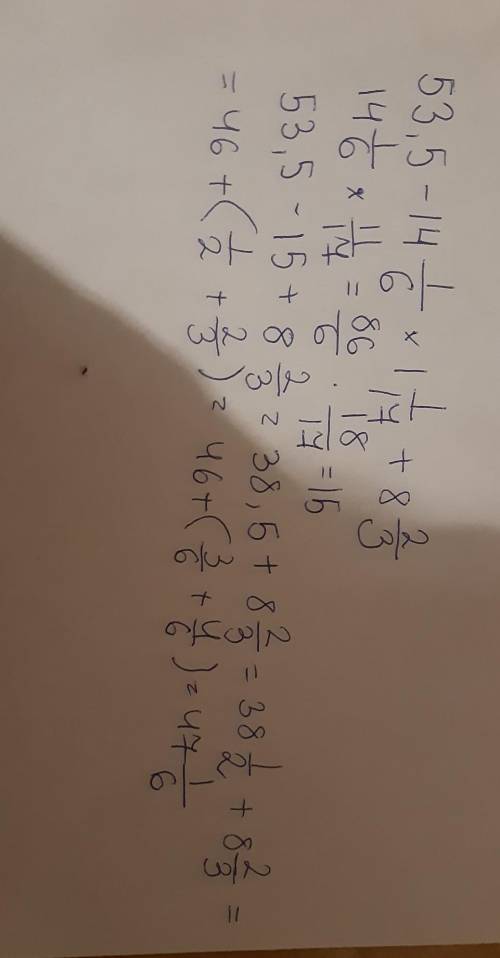 53,5 - 14 1/6 × 1 1/14 + 8 2/3
14 1/6 × 11/14 = 86/6 · 18/14 = 15
53,5 - 15 + 8 2/3 = 38,5 + 8 2/3 = 38 1/2 + 8 2/3 =
= 46 + (1/2 + 2/3) = 46 + (3/6 + 4/6) = 47 1/6